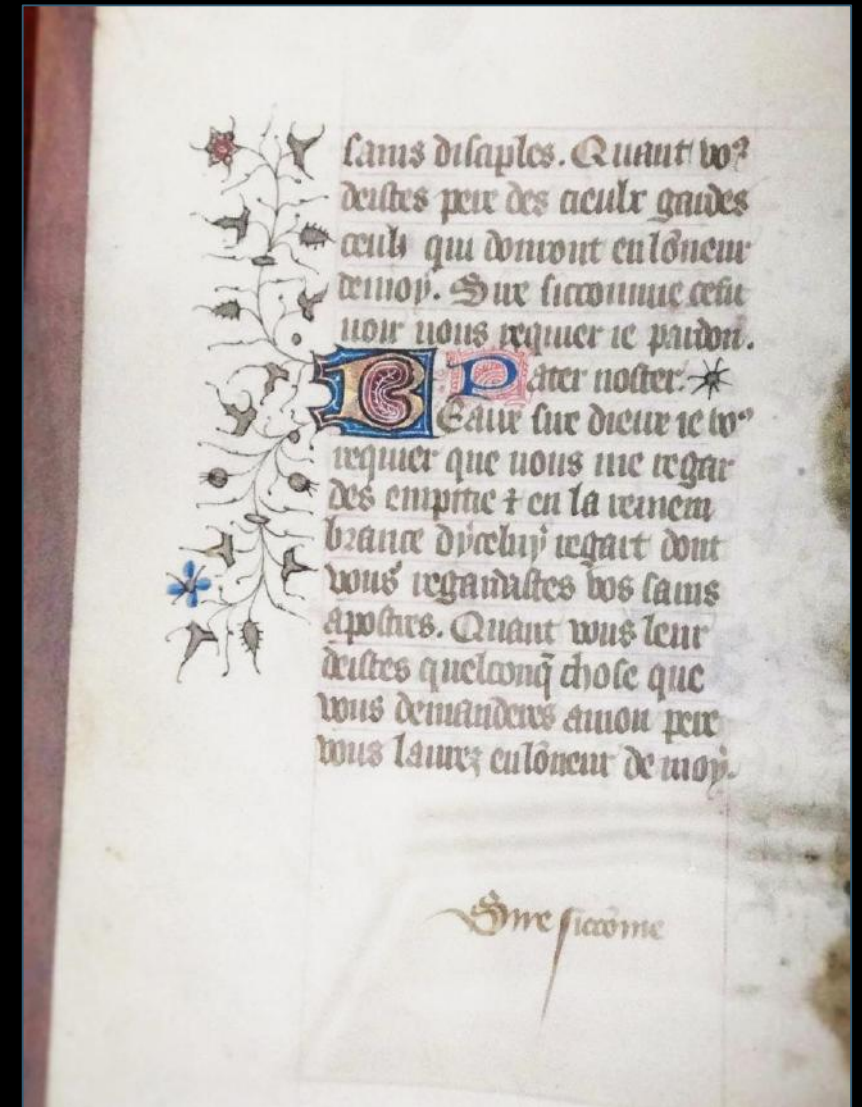 sains disciples. Quant voꝰ
deistes peire des cieulx gardes
ceuls qui domront en lõneur
de moy. Sire siccomme ce fu
voir vous requier ie pardon.
Pater noster.
BEaux sire dieux ie voꝰ
requier que vous me regar
des empitie ⁊ en la remem
brance dycelluy regart dont
vous regardastes vos sains
apostres. Quant vous leur
deistes quelconq̃ chose que
vous demanderes amon peire
vous laurez en lõneur de moy.
Sire siccõme